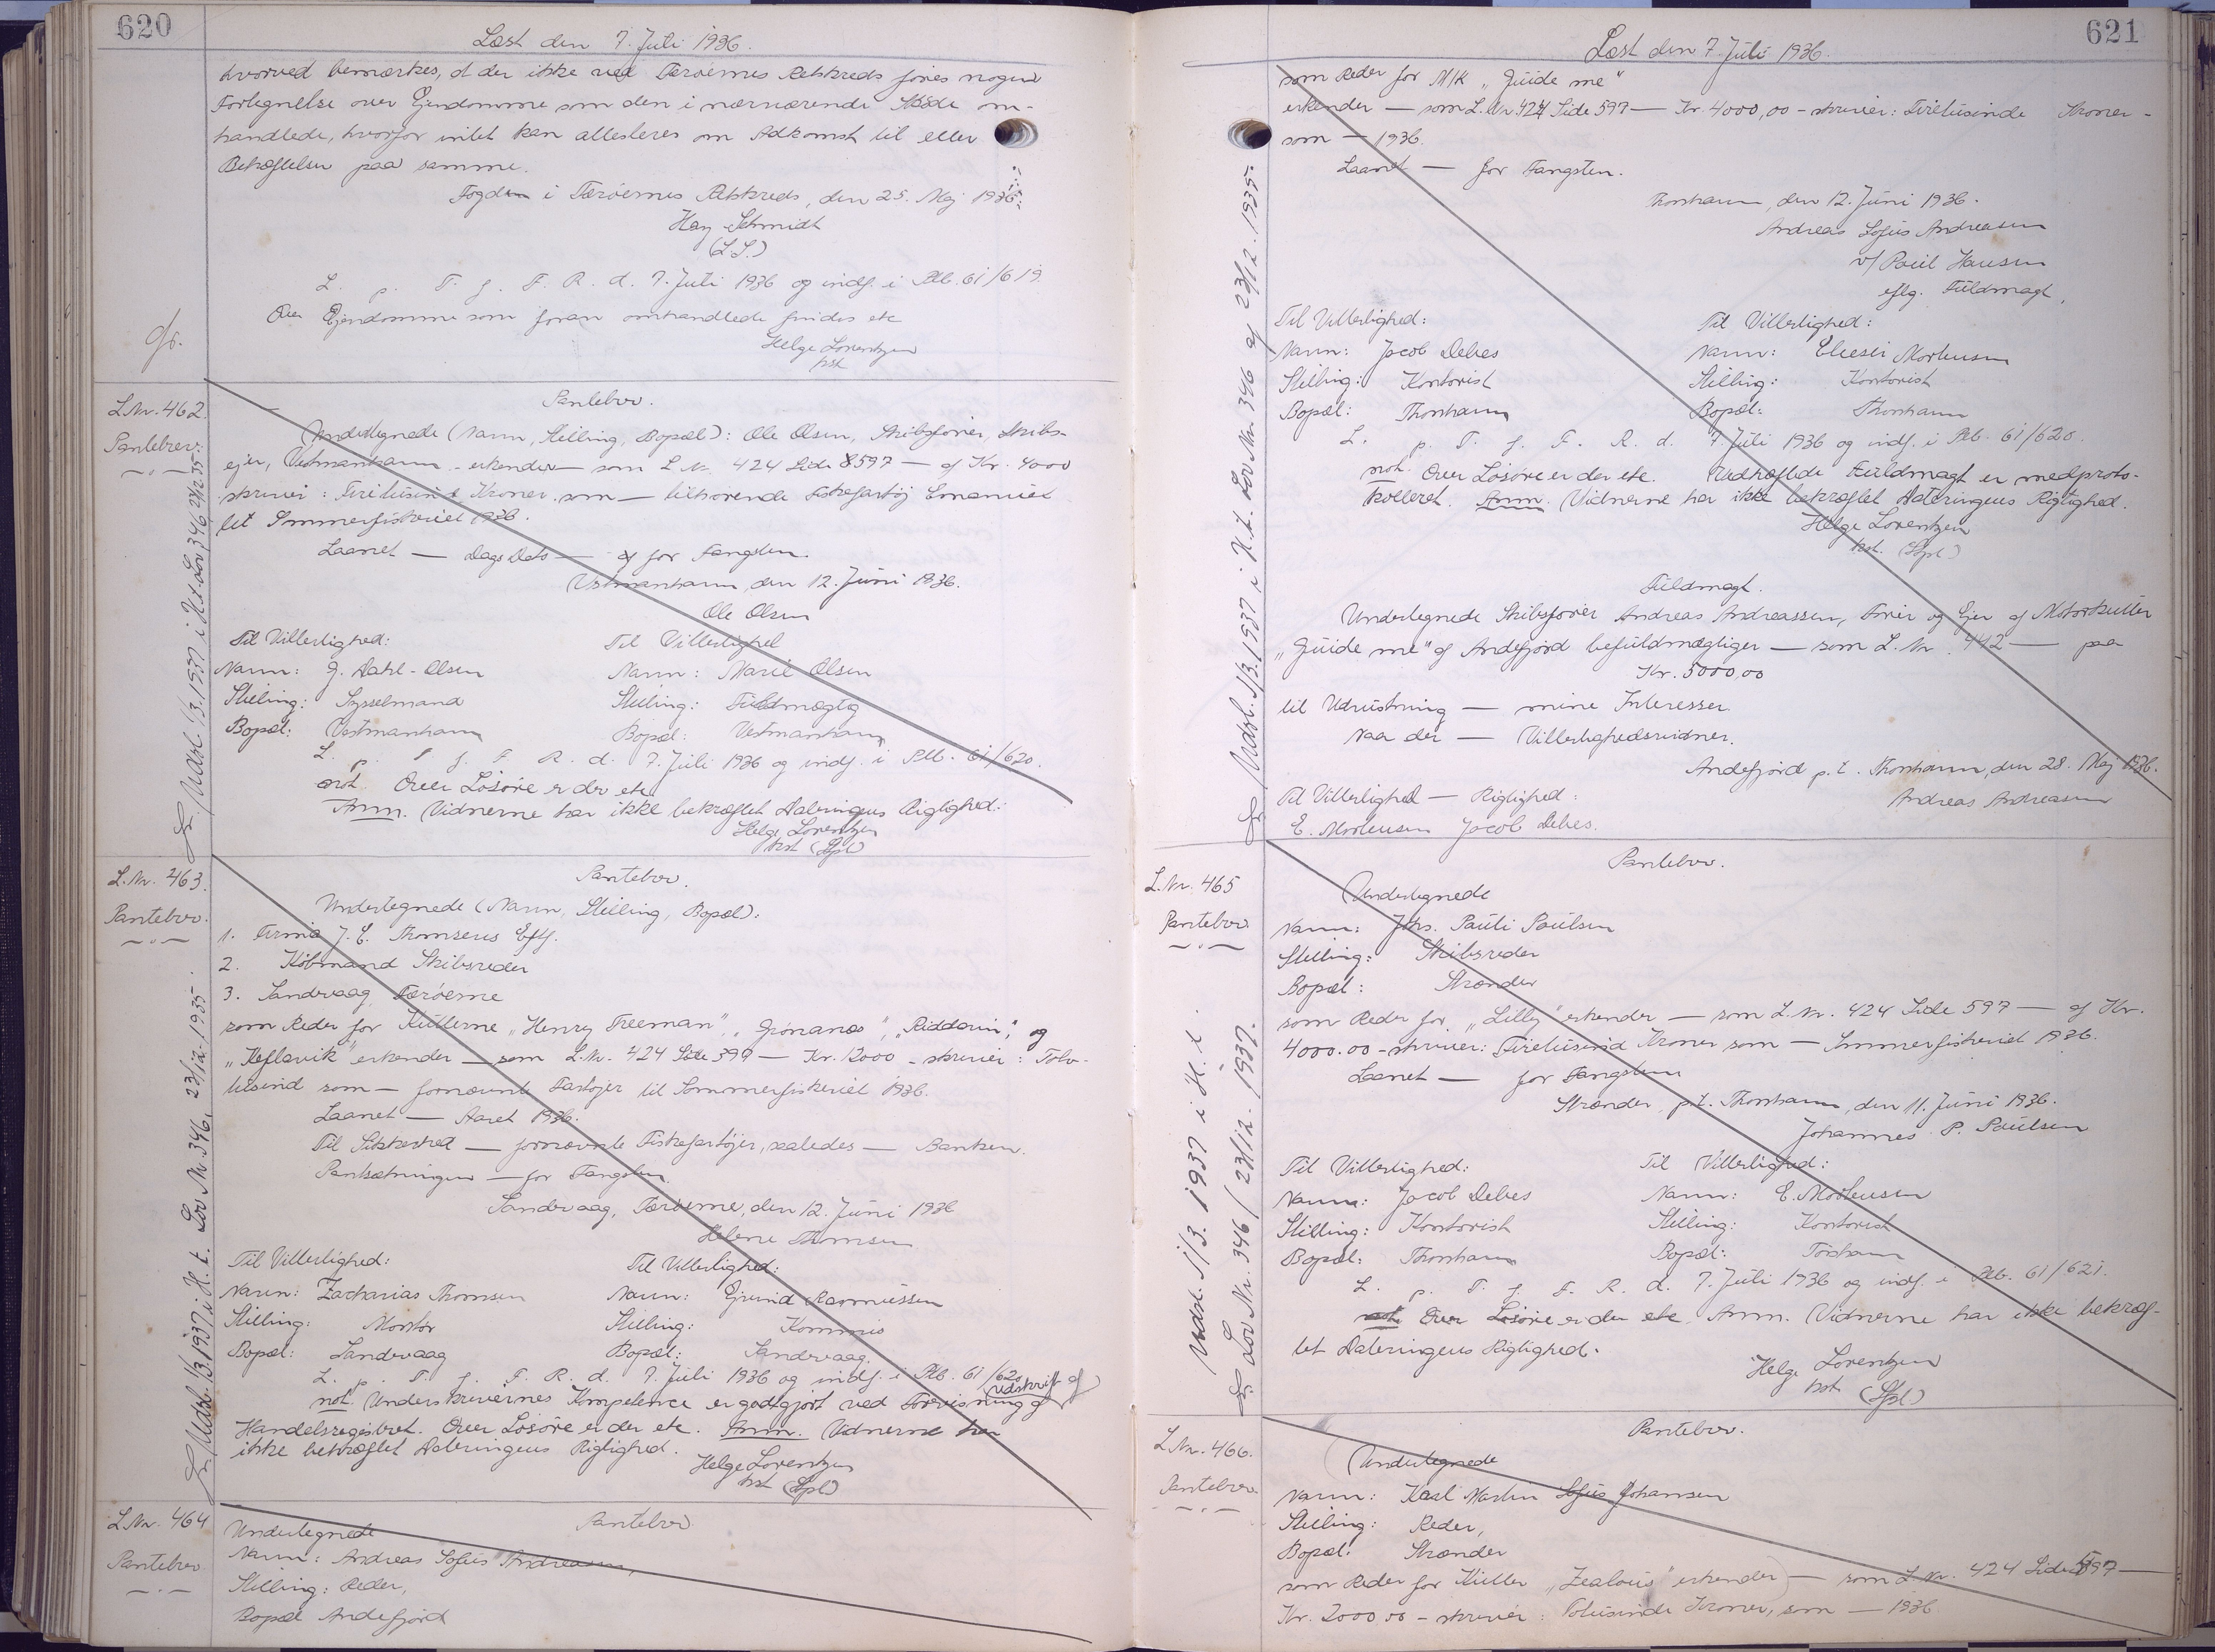 620
Læst den 7. Juli 1936.
hvorved bemærkes, at der ikke ved Færøernes Retskreds føres nogen
Fortegnelse over Ejendomme som den i nærværende Skøde om-
handlede, hvorfor intet kan attesteres om Adkomst til eller
Behæftelser paa samme.
Fogden i Færøernes Retskreds, den 25. Maj 1936.
Hay Schmidt
(L.S.)
L. p. T. f. F. R. d. 7. Juli 1936 og indf. i Ptb. 61/619.
Over Ejendomme som foran omhandlede findes etc
Helge Lorentzen
kst
L.Nr. 462.
Pantebrev.
Pantebrev.
Undertegnede (Navn, Stilling, Bopæl): Ole Olsen, Skibsfører, Skibs-
ejer, Vestmanhavn - erkender — som L.Nr. 424 Side 597 — af Kr. 4000
skriver: Firetusinde Kroner som — tilhørende Fiskefartøj Emanuel
til Sommerfiskeriet 1936.
Laanet — Dags Dato — af for Fangsten.
Vestmanhavn, den 12. Juni 1936.
Ole Olsen
Til Vitterlighed: Til Vitterlighed
Navn: J. Dahl-Olsen Navn: Marie Olsen
Stilling: Sysselmand Stilling: Fuldmægtig
Bopæl: Vestmanhavn Bopæl: Vestmanhavn
L. p. T. f. F. R. d. 7. Juli 1936 og indf. i Ptb. 61/620.
not. Over Løsøre er der etc
Anm. Vidnerne har ikke bekræftet Dateringens Rigtighed:
Helge Lorentzen
kst (Spl)
Udsl. 1/3. 1937 i H.t. Lov 346 23/12 35.
L.Nr. 463.
Pantebrev.
Pantebrev.
Undertegnede (Navn, Stilling, Bopæl):
1. Firma J. E. Thomsens Eftf.
2. Købmand Skibsreder
3. Sandvaag, Færøerne
som Reder for Kutterne "Henry Freeman", "Grønanæs", "Riddarin", og
"Keflavik" erkender — som L.Nr. 424 Side 399 — Kr. 12000 - skriver: Tolv-
tusind som — fornævnte Fartøjer til Sommerfiskeriet 1936.
Laanet — Aaret 1936.
Til Sikkerhed — fornævnte Fiskefartøjer, saaledes — Banken.
Pantsætningen — for Fangsten.
Sandvaag, Færøerne, den 12. Juni 1936
Helene Thomsen
Til Vitterlighed: Til Vitterlighed:
Navn: Zacharias Thomsen Navn: Ejvind Rasmussen
Stilling: Montør Stilling: Kommis
Bopæl: Sandvaag Bopæl: Sandvaag.
L. p. T. f. F. R. d. 7. Juli 1936 og indf. i Ptb. 61/620
not. Underskrivernes Kompetence er godtgjort ved Forevisning af Udskrift af
Handelsregistret. Over Løsøre er der etc. Anm. Vidnerne har
ikke bekræftet Dateringens Rigtighed.
Helge Lorentzen
kst (Spl)
Udsl. 1/3. 1937 i H.t. Lov Nr. 346, 23/12. 1935.
L.Nr. 464
Pantebrev
Pantebrev
Undertegnede
Navn: Andreas Sofus Andreasen,
Stilling: Reder,
Bopæl Andefjord
621
Læst den 7. Juli 1936.
som Reder for M/K "Guide me"
erkender — som L.Nr. 424 Side 597 — Kr. 4000,00 - skriver: Firetusinde Kroner -
som — 1936.
Laanet — for Fangsten.
Thorshavn, den 12. Juni 1936.
Andreas Sofus Andreasen
v/ Poul Hansen
eflg. Fuldmagt.
Til Vitterlighed: Til Vitterlighed:
Navn: Jacob Debes Navn: Elieser Mortensen
Stilling: Kontorist Stilling: Kontorist
Bopæl: Thorshavn Bopæl: Thorshavn
L. p. T. f. F. R. d. 7. Juli 1936 og indf. i Ptb. 61/620.
not. Over Løsøre er der etc. Vedhæftede Fuldmagt er medproto-
kolleret. Anm. Vidnerne har ikke bekræftet Dateringens Rigtighed.
Helge Lorentzen
kst. (Spl)
Fuldmagt.
Undertegnede Skibsfører Andreas Andreassen, Fører og Ejer af Motorkutter
"Guide me" af Andefjord befuldmægtiger — som L.Nr. 442 — paa
Kr. 5000,00
til Udrustning — mine Interesser.
Naa der — Vitterlighedsvidner.
Andefjord p.t. Thorshavn, den 28. Maj 1936.
Andreas Andreasen
Til Vitterlighed — Rigtighed:
E. Mortensen Jacob Debes.
Udsl. 1/3. 1937 i H.t. Lov Nr. 346 af 23/12. 1935.
L.Nr. 465
Pantebrev
Pantebrev.
Undertegnede
Navn: Jhs. Pauli Poulsen
Stilling: Skibsreder
Bopæl: Strænder
som Reder for "Lilly" erkender — som L.Nr. 424 Side 597 — af Kr.
4000.00 - skriver: Firetusind Kroner som — Sommerfiskeriet 1936.
Laanet — for Fangsten
Strænder, p.t. Thorshavn, den 11. Juni 1936.
Johannes P. Poulsen
Til Vitterlighed: Til Vitterlighed:
Navn: Jacob Debes Navn: E. Mortensen
Stilling: Kontorist Stilling: Kontorist
Bopæl: Thorshavn Bopæl: Torshavn
L. p. T. f. F. R. d. 7. Juli 1936 og indf. i Ptb. 61/621.
not. Over Løsøre er der etc Anm. Vidnerne har ikke bekræf-
tet Dateringens Rigtighed.
Helge Lorentzen
kst (Spl)
Udsl. 1/3. 1937 i H.t.
Lov Nr. 346/23/12. 1937.
L.Nr. 466.
Pantebrev
Pantebrev.
Undertegnede
Navn: Karl Martin Sofus Johansen
Stilling: Reder,
Bopæl: Strænder
som Reder for Kutter "Zealous" erkender — som L.Nr. 424 Side 597 —
Kr. 2000,00 - skriver: Totusinde Kroner, som — 1936.